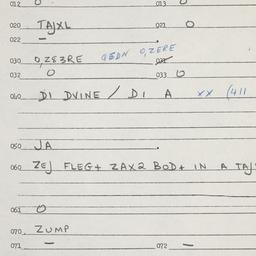 012 0 013 0
020 TAJXL 021 0
022 –
030 0,ZE3RE GEDN 0,ZERE 031
032 0 033 0
040 DI DVINE / DI A XX (411
050 JA
060 ZEJ FLEG+ ZAX2 BOD+ IN A TAJ
061 0
070 ZUMP
071 – 072 –